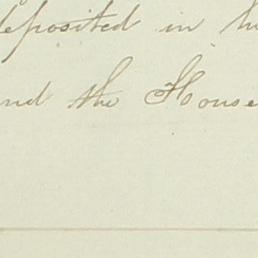 deposited in
and the House